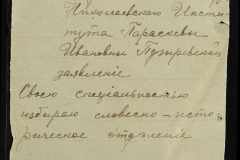 Николаевского Инсти-
тута Параскевы
Ивановны
заявленіе
Своею спеціальностью
избираю словесно-исто-
рическое отдѣленіе